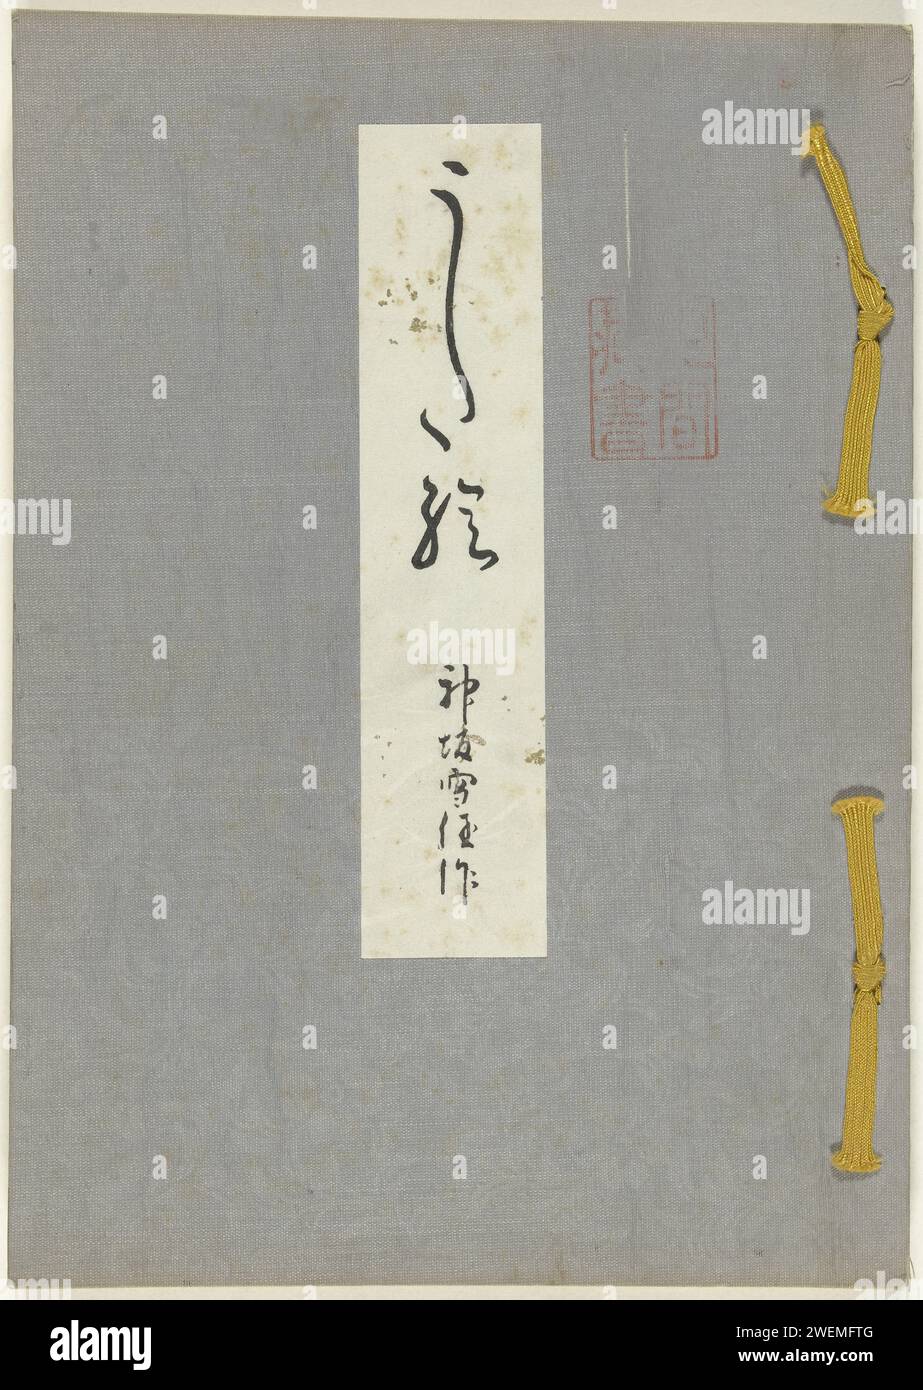 うた絵
神坂雪佳作
間
書
alamy
alamy
Image ID: 2WEMFTG
www.alamy.com